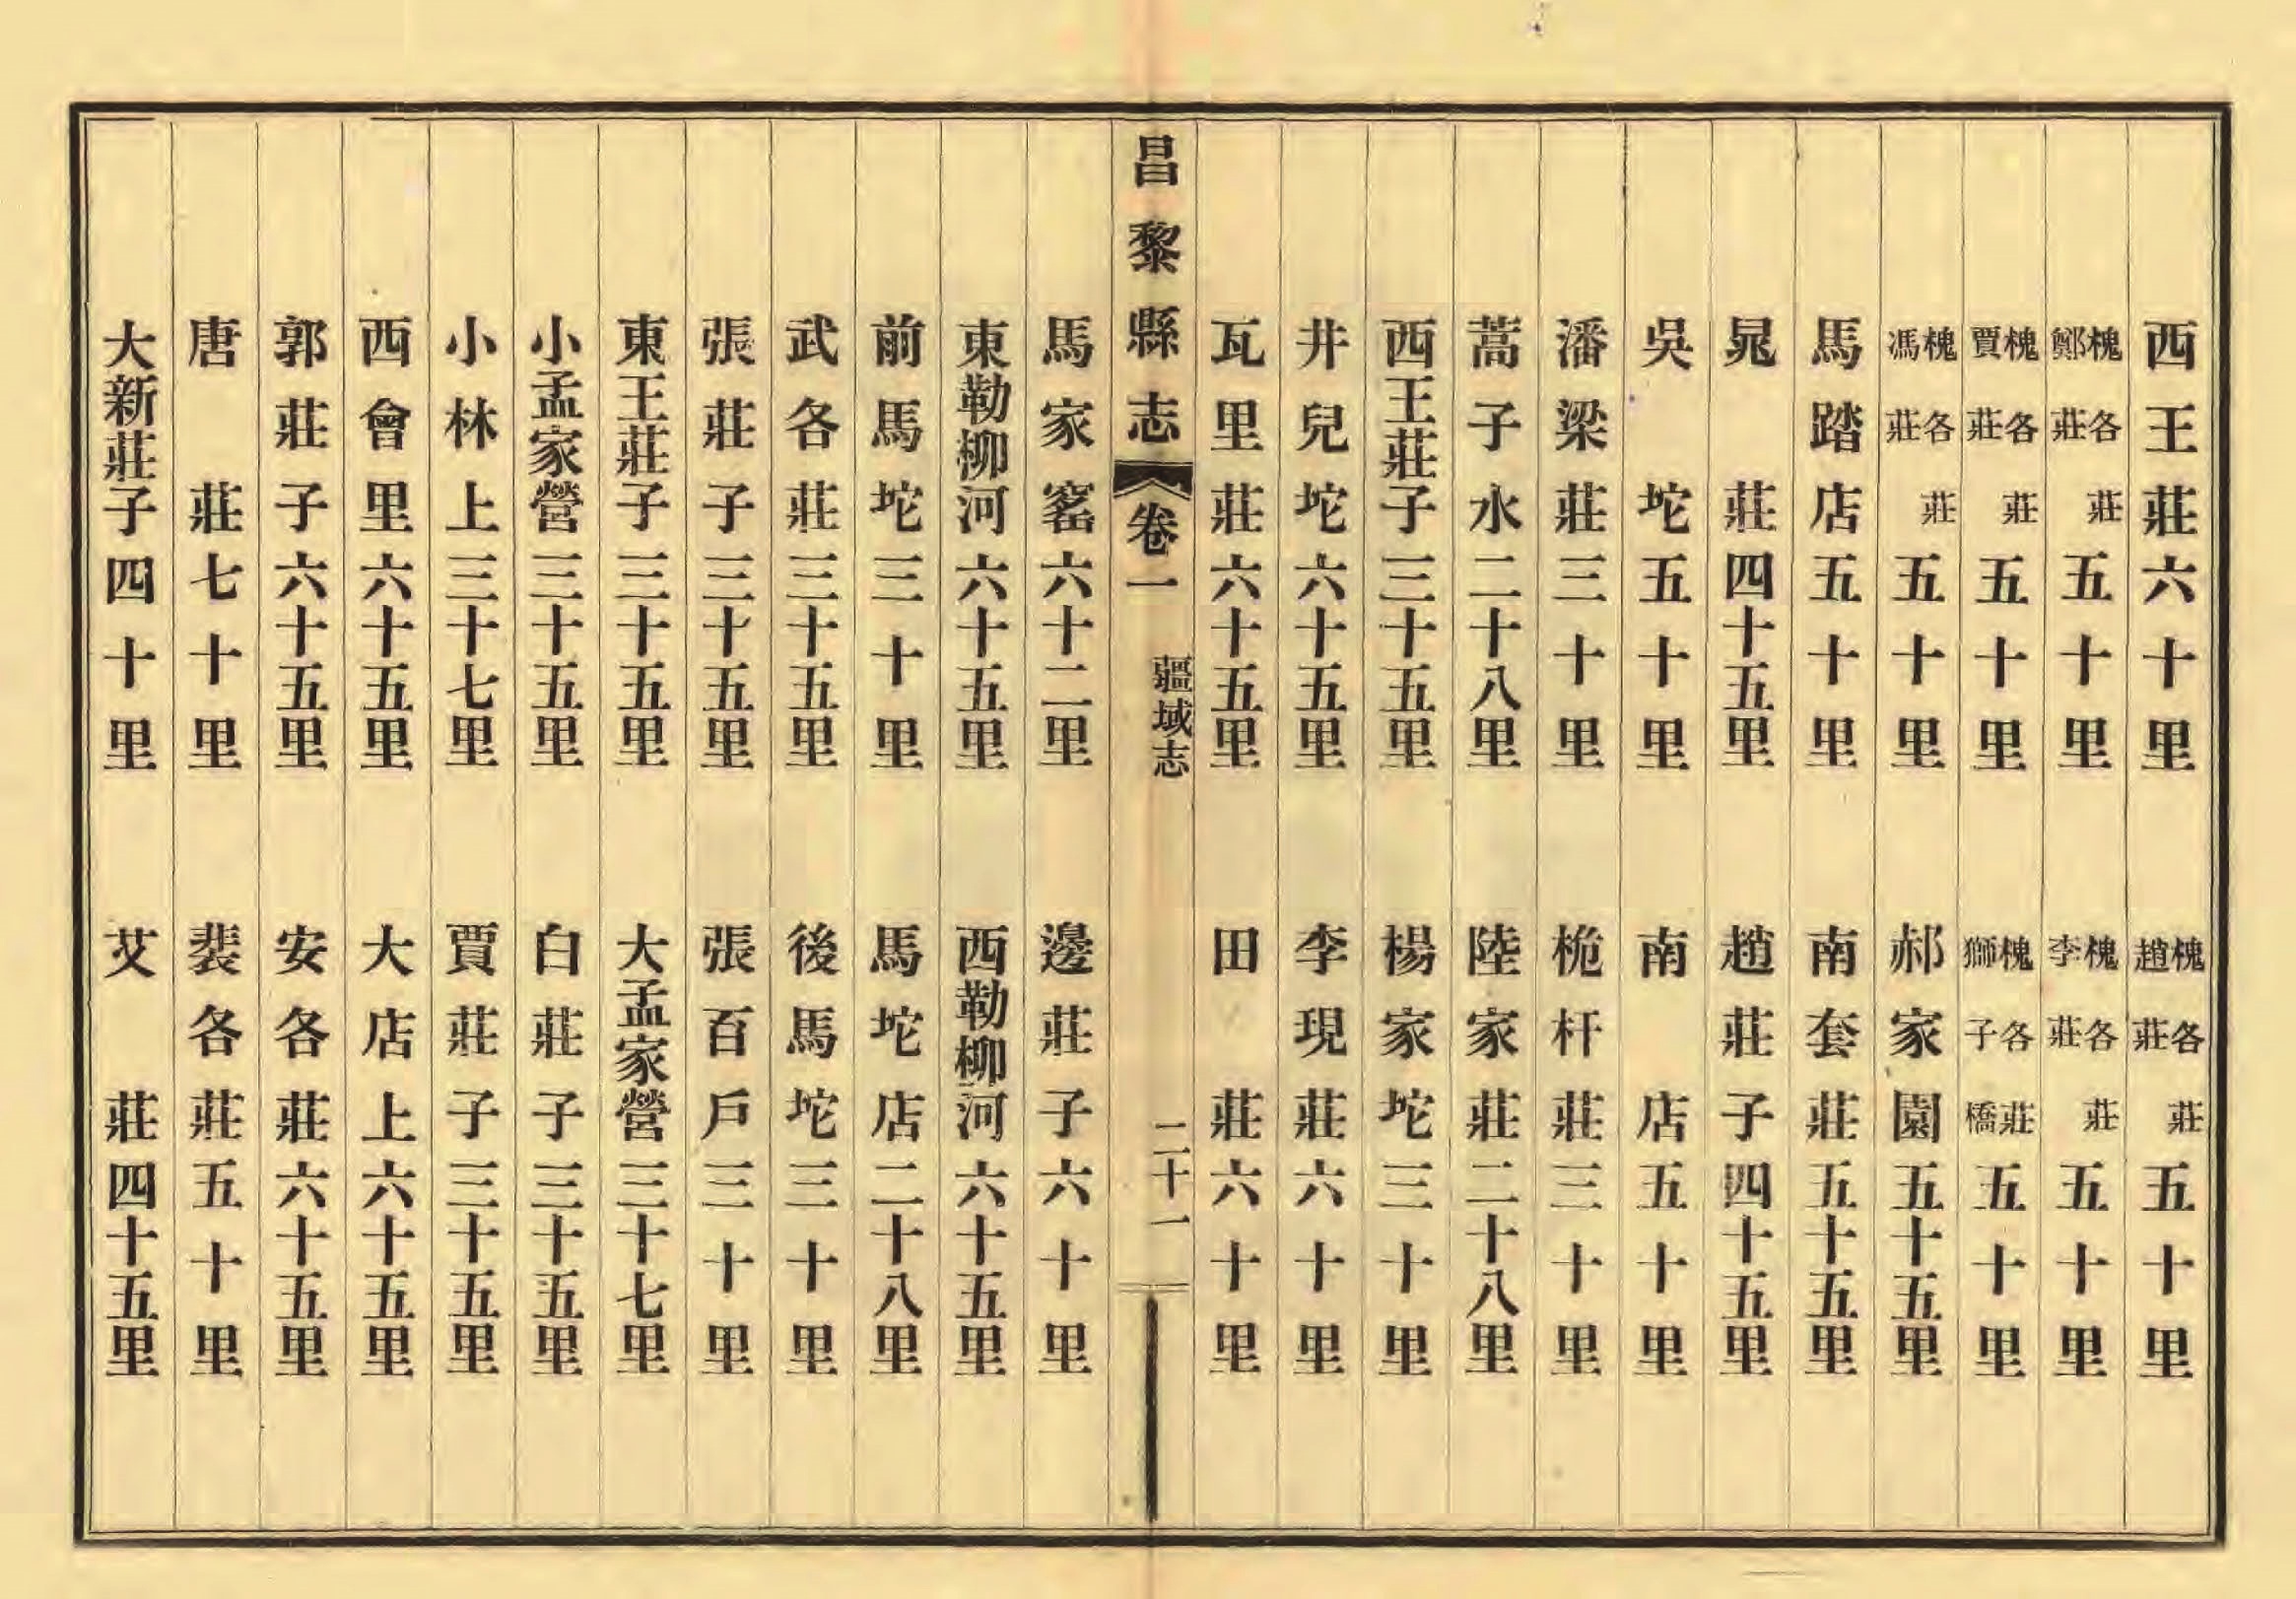 西王莊六十里　槐各莊趙莊五十里
槐各莊鄭莊五十里　槐各莊李莊五十里
槐各莊賈莊五十里　槐各莊獅子橋五十里
槐各莊馮莊五十里　郝家園五十五里
馬踏店五十里　南套莊五十五里
晁莊四十五里　趙莊子四十五里
吳坨五十里　南店五十里
潘梁莊三十里　桅杆莊三十里
蒿子水二十八里　陸家莊二十八里
西王莊子三十五里　楊家坨三十里
井兒坨六十五里　李現莊六十里
瓦里莊六十五里　田莊六十里
昌黎縣志　卷一　疆域志　二十一
馬家窰六十二里　邊莊子六十里
東勒柳河六十五里　西勒柳河六十五里
前馬坨三十里　馬坨店二十八里
武各莊三十五里　後馬坨三十里
張莊子三十五里　張百戶三十里
東王莊子三十五里　大孟家營三十七里
小孟家營三十五里　白莊子三十五里
小林上三十七里　賈莊子三十五里
西會里六十五里　大店上六十五里
郭莊子六十五里　安各莊六十五里
唐莊七十里　裴各莊五十里
大新莊子四十里　艾莊四十五里